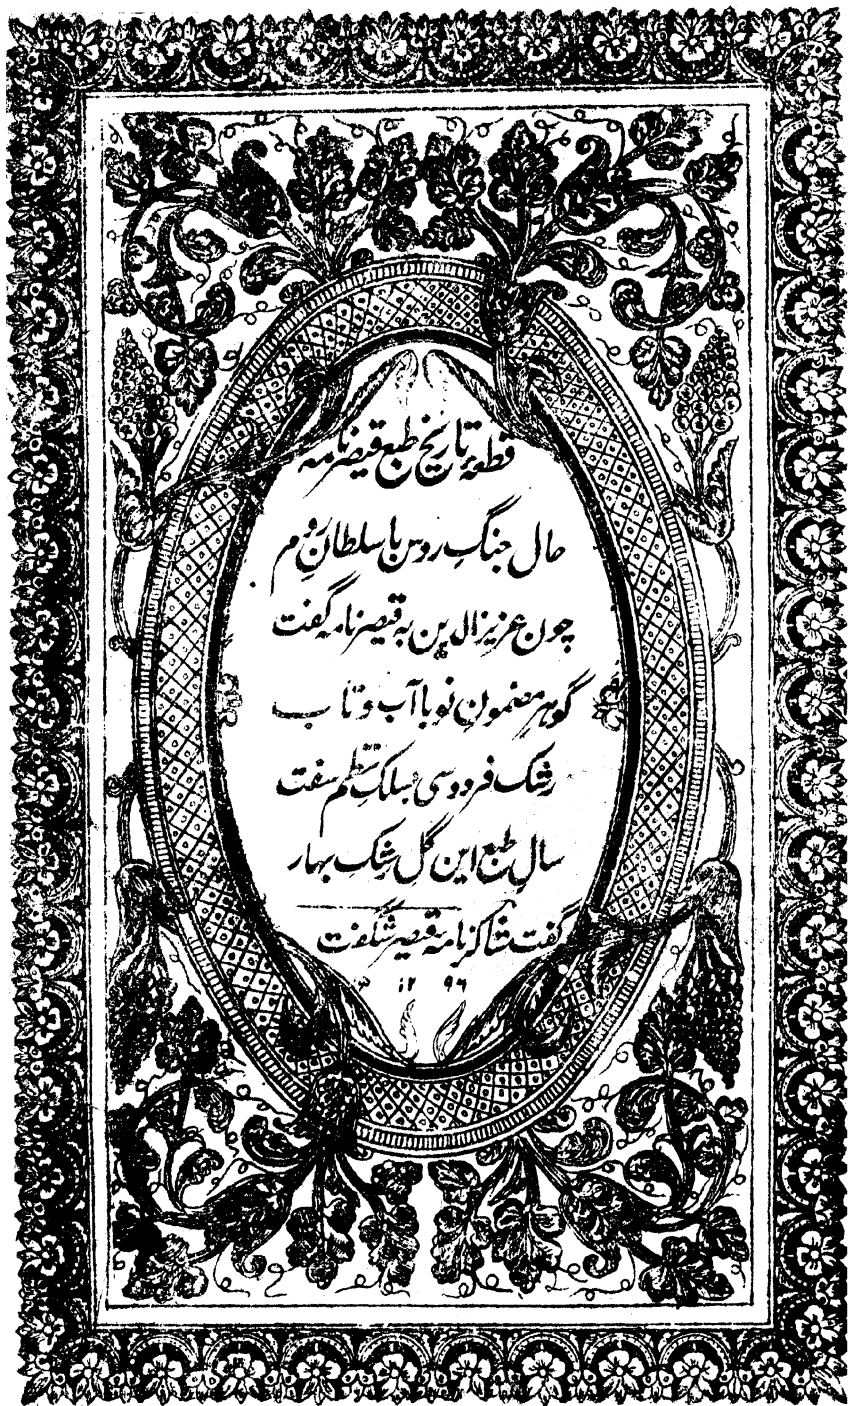 قطعهٔ تاریخ طبع قیصرنامه
حال جنگِ روس با سلطانِ روم
چون عزیزالدین به قیصرنامه گفت
گوهرِ مضمونِ نو با آب و تاب
رشک فردوسی بسلکِ نظم سفت
سالِ طبع این گلِ رشک بهار
گفت شاکر نامهٔ قیصر شگفت
۱۲۹۶